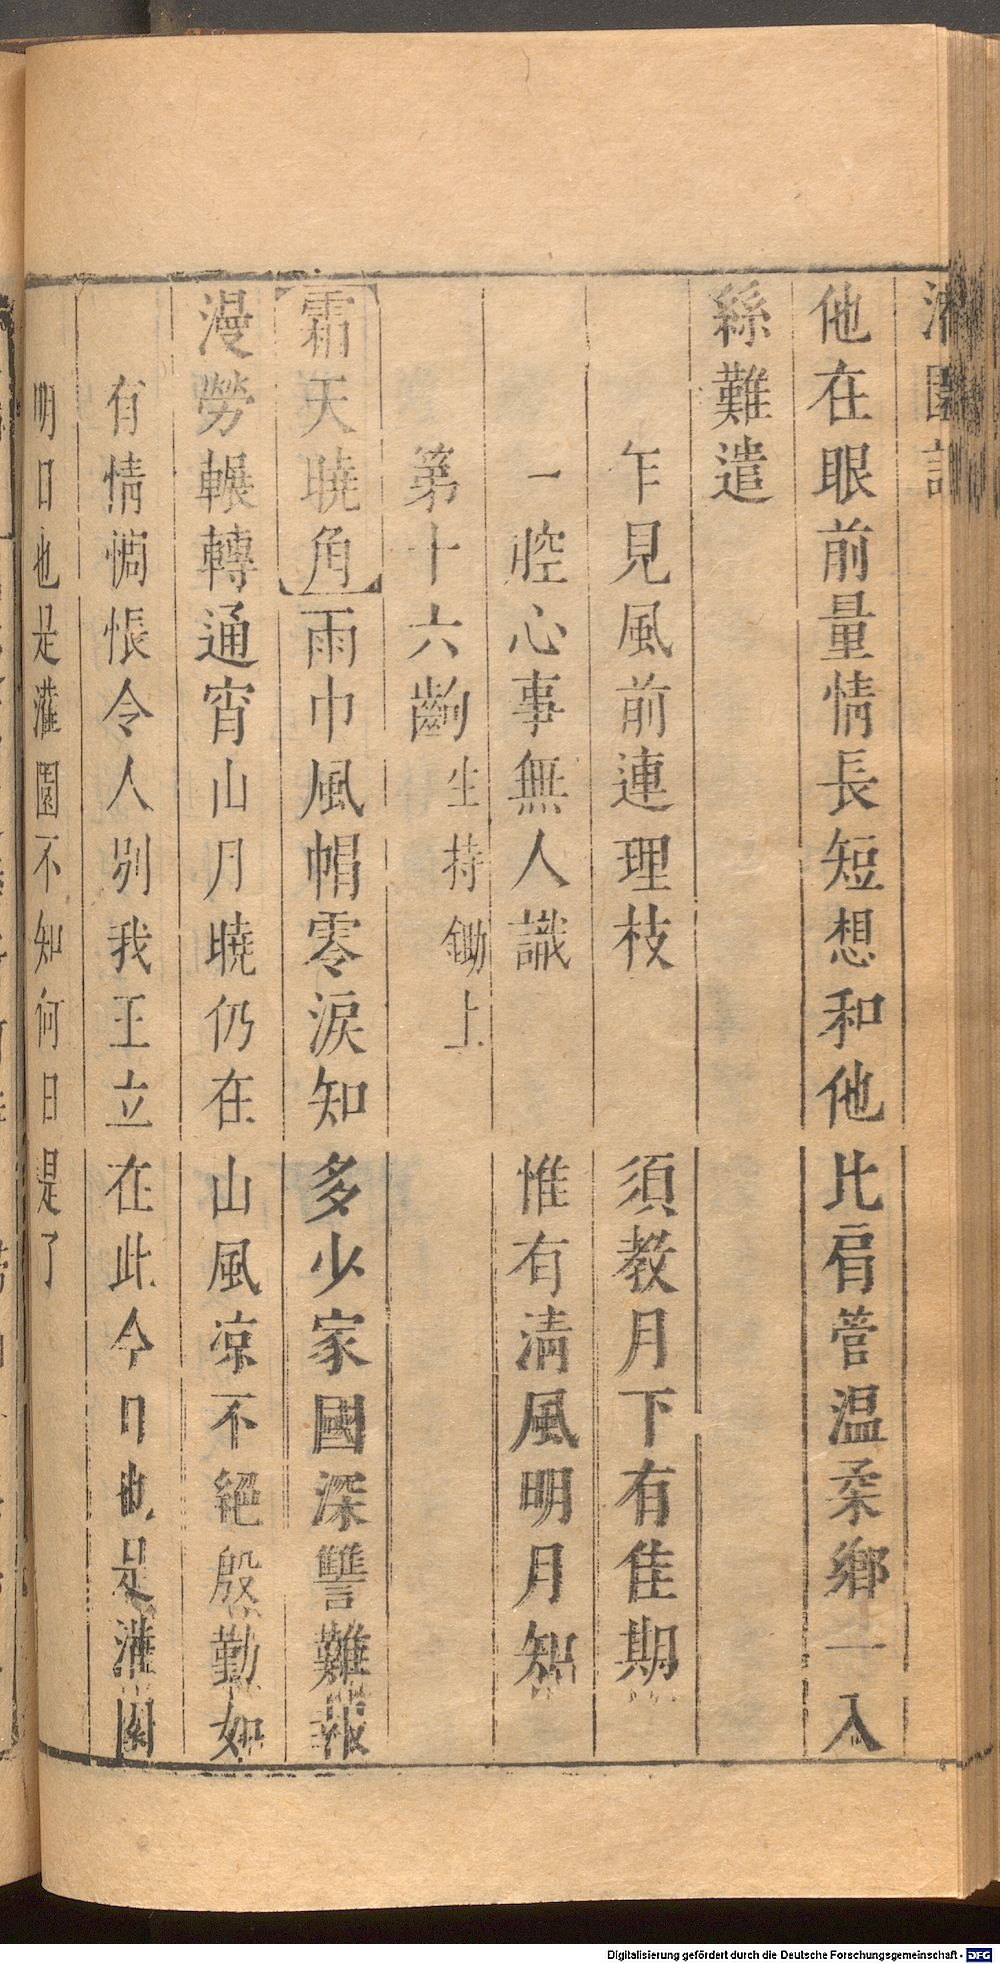 灌園記
他在眼前量情長短想和他比肩管温柔鄉一入
絲難遣
乍見風前連理枝　須教月下有佳期
一腔心事無人識　惟有清風明月知
第十六齣　生持鋤上
霜天曉角雨巾風帽零淚知多少家國深讐難報
漫勞輾轉通宵山月曉仍在山風凉不絕殷勤如
有情惆悵令人別我王立在此今日也是灌園
明日也是灌園不知何日是了
Digitalisierung gefördert durch die Deutsche Forschungsgemeinschaft - DFG